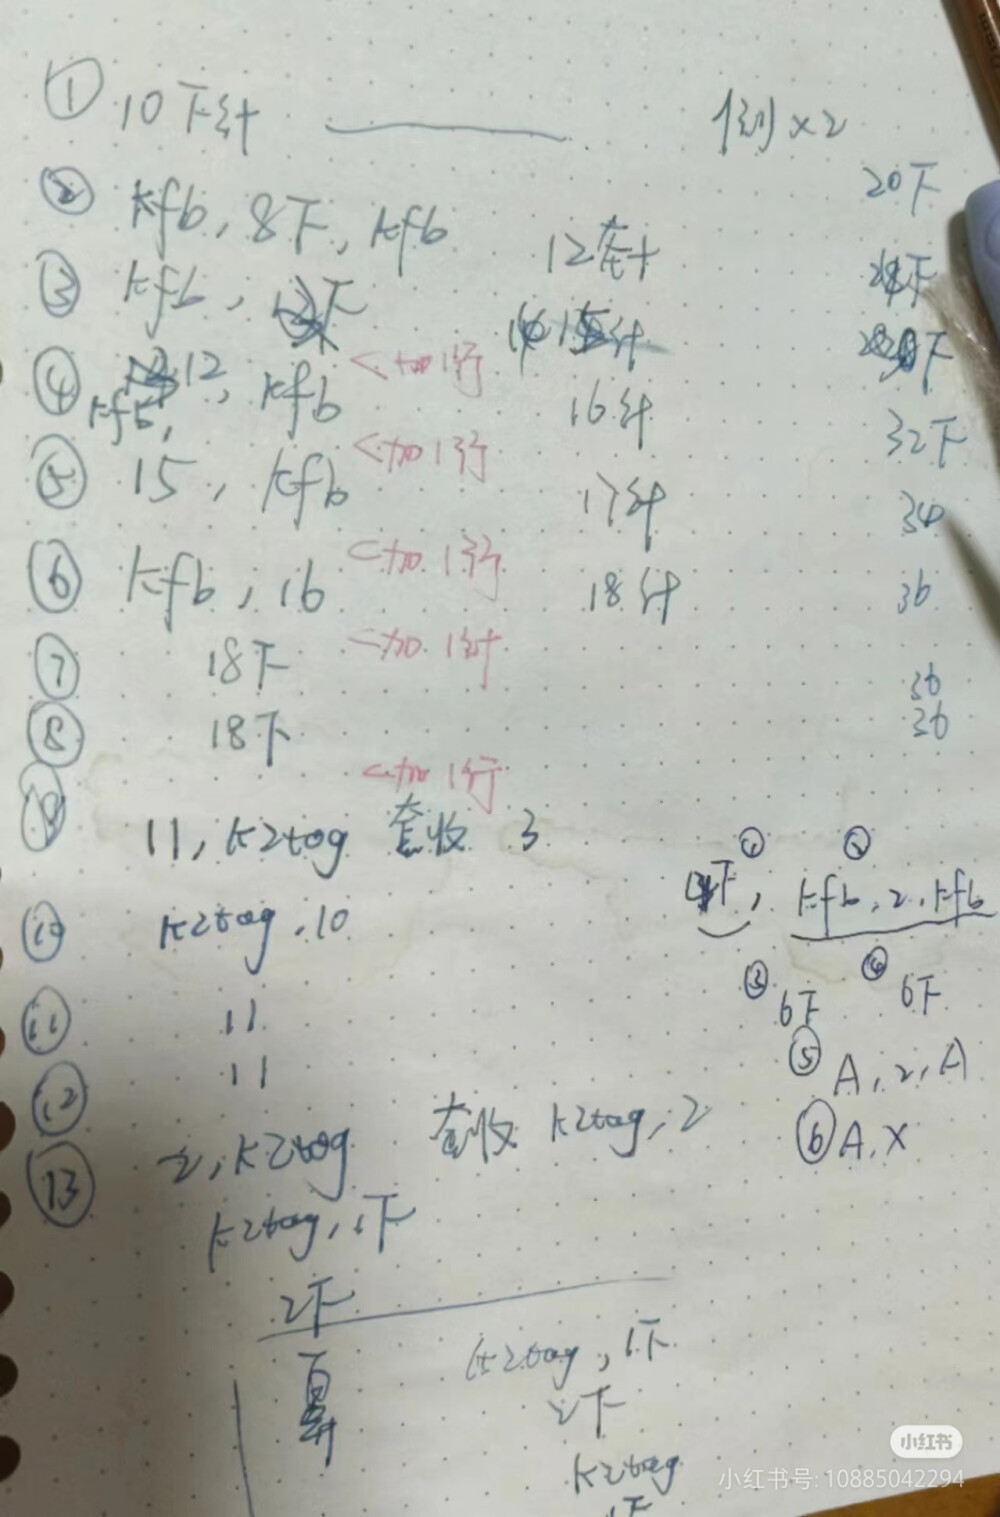 ① 10下针 —— 侧×2
20下
② kfb, 8下, kfb 12针
③ kfb, 下
下
<加1行
④ 12, kfb 16针
kfb,
32下
<加1行
⑤ 15, kfb 17针 34
<加1行
⑥ kfb, 16 18针 36
-加1针
⑦ 18下 36
⑧ 18下 36
<加1行
⑨ 11, k2tog 套收 3
⑩ k2tog, 10
⑪ 11
⑫ 11
⑬ 2, k2tog 套收 k2tog, 2
k2tog, 1下
2下
① ②
下, kfb, 2, kfb
③ 6下 ④ 6下
⑤ A, 2, A
⑥ A, X
k2tog, 1下
2下
k2tog
1下
小红书
小红书号: 10885042294